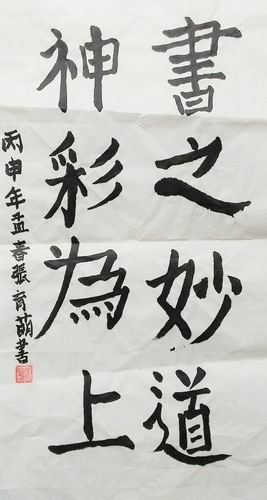 書之妙道
神彩為上
丙申年孟春張育萌書